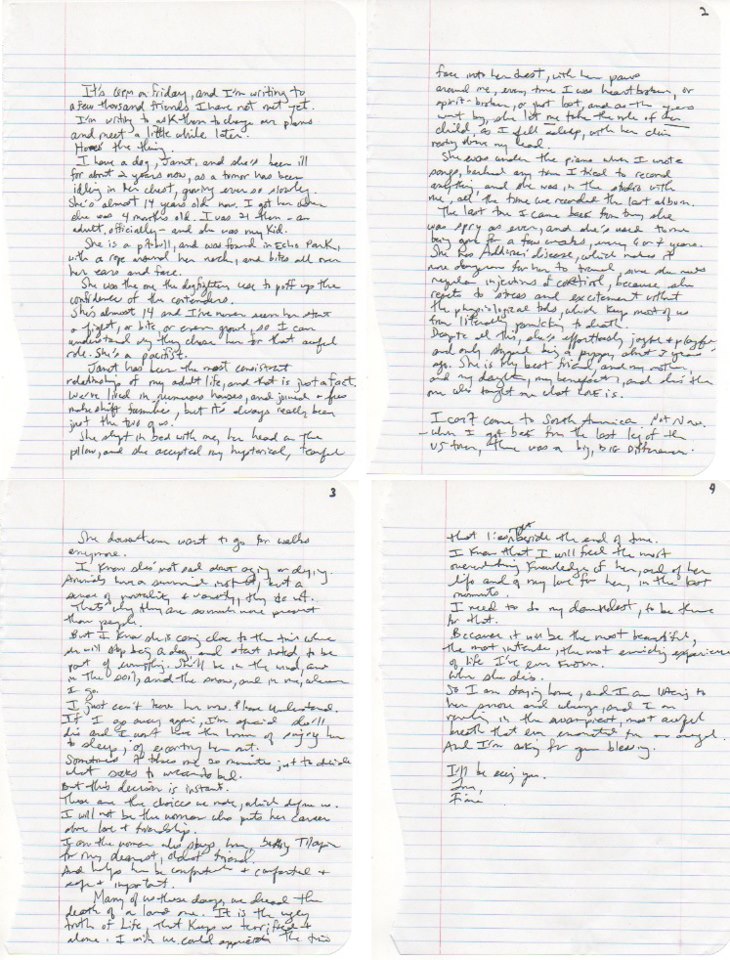 It's 6pm on Friday, and I'm writing to
a few thousand friends I have not met yet.
I'm writing to ask them to change our plans
and meet a little while later.
Here's the thing.
I have a dog, Janet, and she's been ill
for about 2 years now, as a tumor has been
idling in her chest, growing ever so slowly.
She's almost 14 years old now. I got her when
she was 4 months old. I was 21 then - an
adult, officially - and she was my kid.
She is a pitbull, and was found in Echo Park,
with a rope around her neck, and bites all over
her ears and face.
She was the one the dogfighters use to puff up the
confidence of the contenders.
She's almost 14 and I've never seen her start
a fight, or bite, or even growl, so I can
understand why they chose her for that awful
role. She's a pacifist.
Janet has been the most consistent
relationship of my adult life, and that is just a fact.
We've lived in numerous houses, and joined a few
makeshift families, but it's always really been
just the two of us.
She slept in bed with me, her head on the
pillow, and she accepted my hysterical, tearful
2
face into her chest, with her paws
around me, every time I was heartbroken, or
spirit-broken, or just lost, and as the years
went by, she let me take the role of her
child, as I fell asleep, with her chin
resting above my head.
She was under the piano when I wrote
songs, barked any time I tried to record
anything, and she was in the studio with
me, all the time we recorded the last album.
The last time I came back from tour, she
was spry as ever, and she's used to me
being gone for a few weeks, every 6 or 7 years.
She has Addison's disease, which makes it
more dangerous for her to travel, since she needs
regular injections of cortisol, because she
reacts to stress and excitement without
the physiological tools which keep most of us
from literally panicking to death.
Despite all this, she's effortlessly joyful & playful,
and only stopped being a puppy about 3 years
ago. She is my best friend, and my mother,
and my daughter, my benefactor, and she's the
one who taught me what love is.
I can't come to South America. Not Now.
- When I got back from the last leg of the
US tour, there was a big, BIG difference.
3
She doesn't even want to go for walks
anymore.
I know she's not sad about aging or dying.
Animals have a survival instinct, but a
sense of mortality & vanity, they do not.
That's why they are so much more present
than people.
But I know she is coming close to the time where
she will stop being a dog and start instead to be
part of everything. She'll be in the wind, and
in the soil, and the snow, and in me, wherever
I go.
I just can't leave her now. Please understand.
If I go away again, I'm afraid she'll
die and I won't have the honor of singing her
to sleep, of escorting her out.
Sometimes it takes me 20 minutes just to decide
what socks to wear to bed.
But this decision is instant.
These are the choices we make, which define us.
I will not be the woman who puts her career
above love & friendship.
I am the woman who stays home, baking Tilapia
for my dearest, oldest friend.
And helps her be comfortable & comforted &
safe & important.
Many of us these days, we dread the
death of a loved one. It is the ugly
truth of Life, that keeps us terrified &
alone. I wish we could appreciate the time
4
that lies right beside the end of time.
I know that I will feel the most
overwhelming knowledge of her, and of her
life and of my love for her, in the last
moments.
I need to do my damndest, to be there
for that.
Because it will be the most beautiful,
the most intense, the most enriching experience
of life I've ever known.
When she dies.
So I am staying home, and I am listening to
her snore and wheeze, and I am
revelling in the swampiest, most awful
breath that ever emanated from an angel.
And I'm asking for your blessing.
I'll be seeing you.
Love,
Fiona